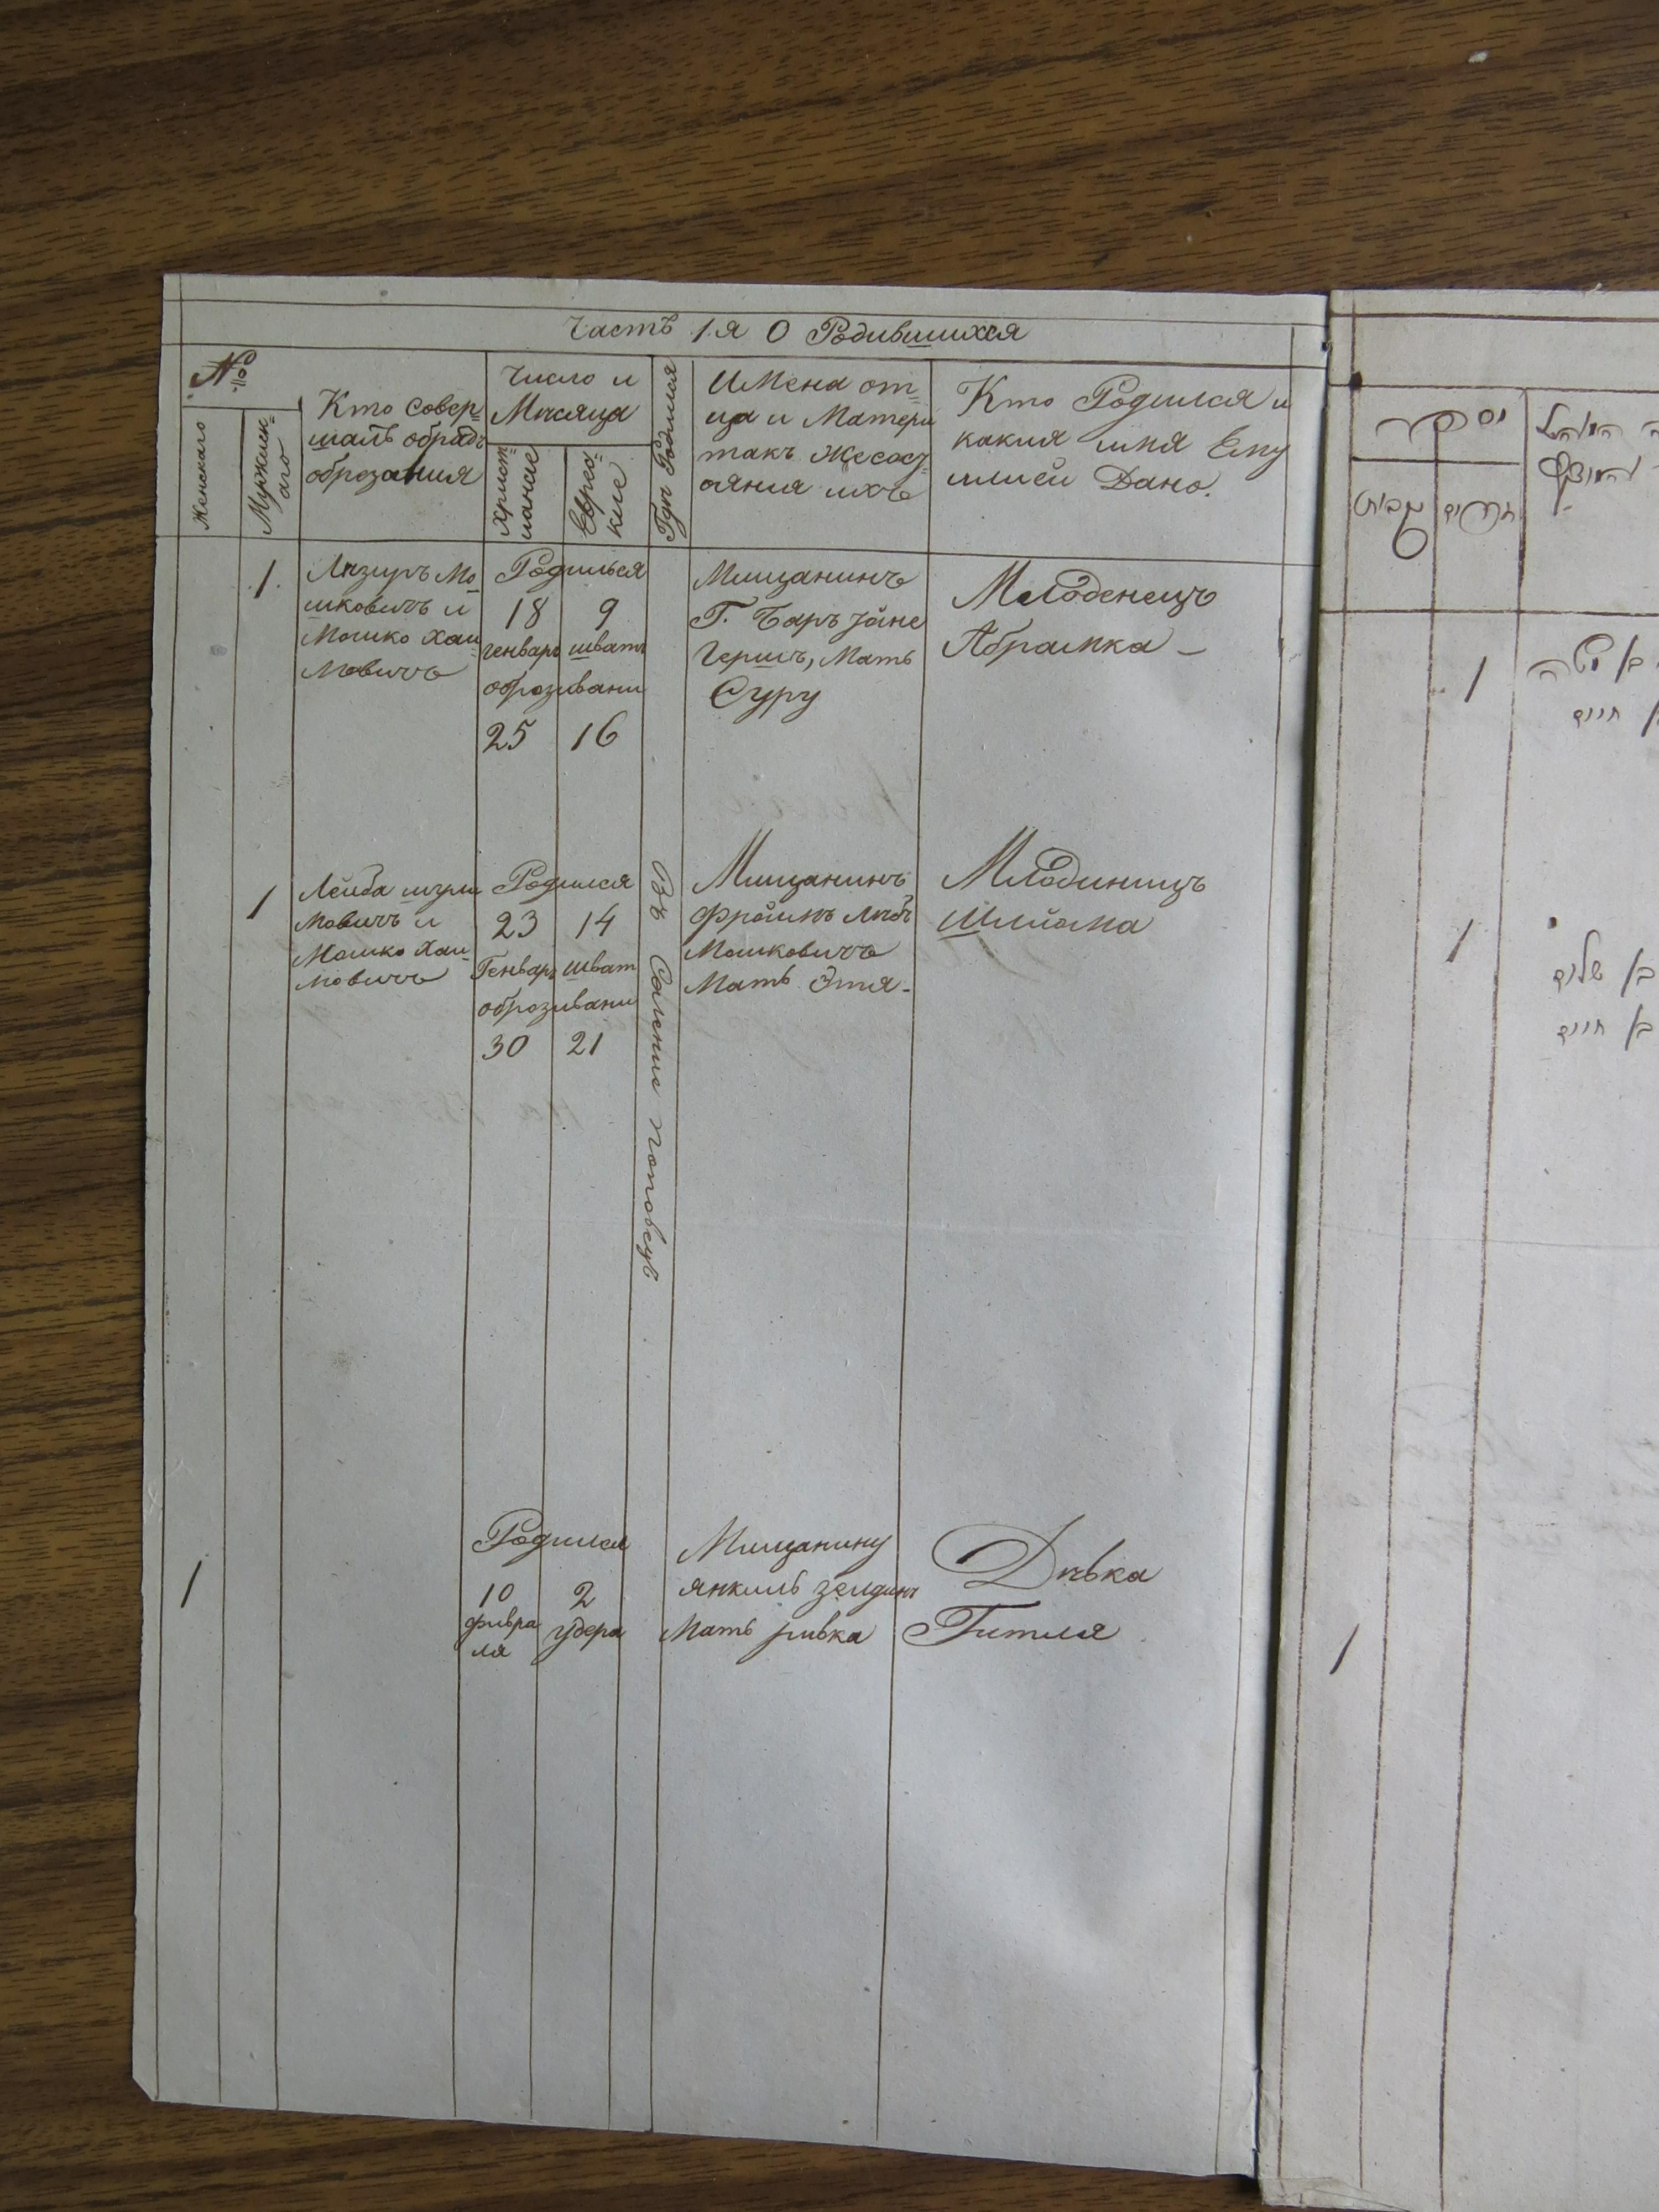 Часть 1.я О Родившихся
№
Женскаго
Мужиск=
аго
Кто совер=
шалъ обрадъ
обрезания
Число и
Месяца
Христ=
ианские
Еврес=
кие
Гдъ Родился
Имена от=
ца и Матери
такъ же сост
ояния ихъ
Кто Родился и
какия имя Ему
илией Дано.
1.
Лѣзиръ Мо
шковичъ и
Мошко Хаи
мовичъ
Родилься
18 9
генварь шватъ
образивани
25 16
Мищанинъ
Герштъ, Мать
Суру
Младенецъ
Абрамка -
1
Лейба
мовичъ и
Мошко Хаи=
мовичъ
Родился
23 14
Генварь шват
образивани
30 21
Въ Селение поповец
Мищанинъ
Фроимъ Лѣбъ
Мошковичъ
Мать Этя-
Млодиницъ
Шлиома
1
Родился
10 2
февра
ля
удера
Мищанину
янкиль зелдинъ
Мать ривка
Дѣвка
Гитля
1
בן חיים
1
בן שלום
בן חיים
1